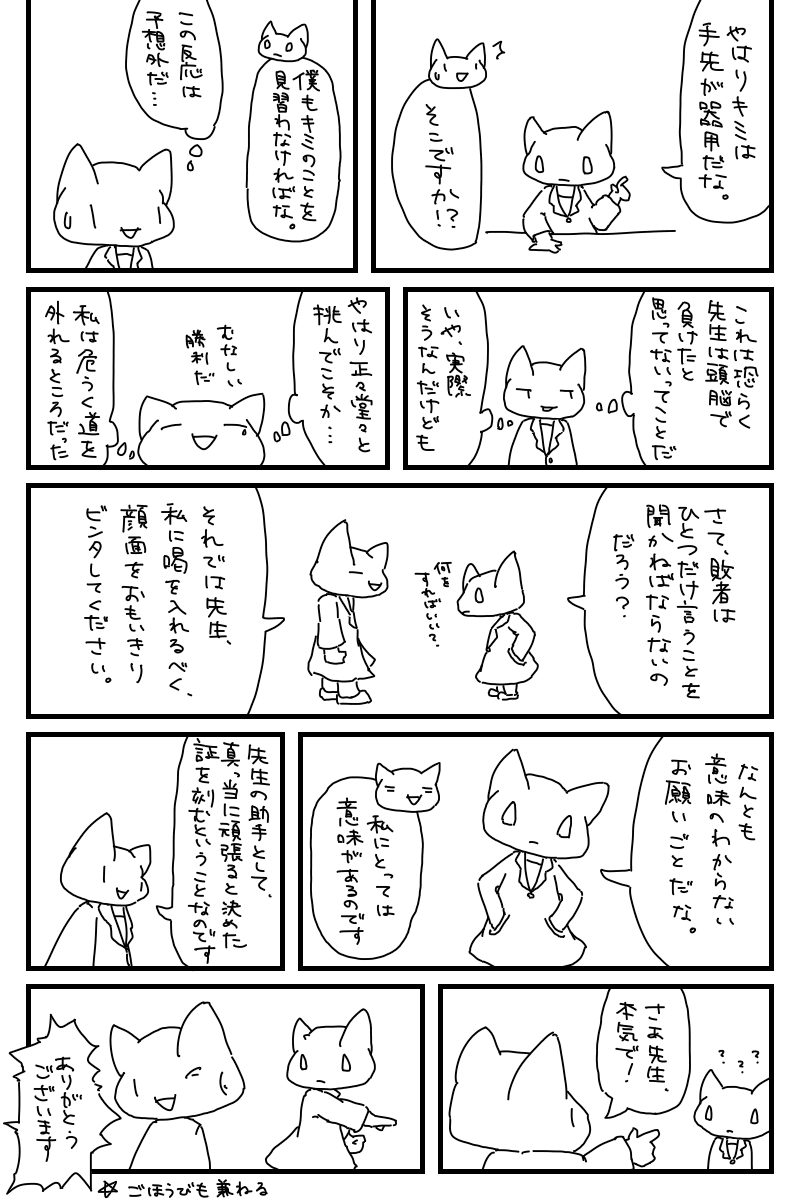 やはりキミは
手先が器用だな。
そこですか!?
僕もキミのことを
見習わなければな。
この反応は
予想外だ…
これは恐らく
先生は頭脳で
負けたと
思ってないってことだ
いや、実際
そうなんだけども
やはり正々堂々と
挑んでこそか…
むなしい
勝利だ
私は危うく道を
外れるところだった
さて、敗者は
ひとつだけ言うことを
聞かねばならないの
だろう?
何を
すればいい?
それでは先生、
私に喝を入れるべく、
顔面をおもいきり
ビンタしてください。
なんとも
意味のわからない
お願いごとだな。
私にとっては
意味があるのです
先生の助手として、
真っ当に頑張ると決めた
証を刻むということなのです
さあ先生、
本気で!
? ? ?
ありがとう
ございます
☆ごほうびも兼ねる